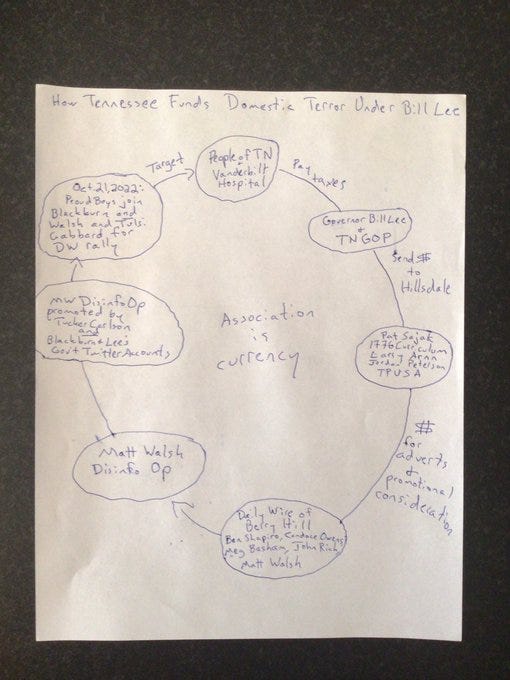 How Tennessee Funds Domestic Terror Under Bill Lee
People of TN
+
Vanderbilt
Hospital
Pay
taxes
Governor Bill Lee
+
TN GOP
Send $
to
Hillsdale
Pat Sajak
1776 Curriculum
Larry Arnn
Jordan Peterson
TPUSA
$
for
adverts
&
promotional
consideration
Daily Wire of
Berry Hill
Ben Shapiro, Candace Owens
Meg Basham, John Rich
Matt Walsh
Matt Walsh
Disinfo Op
MW Disinfo Op
promoted by
Tucker Carlson
and
Blackburn & Lee's
Govt Twitter Accounts
Oct 21, 2022:
Proud Boys join
Blackburn and
Walsh and Tulsi
Gabbard for
DW rally
Target
Association
is
currency